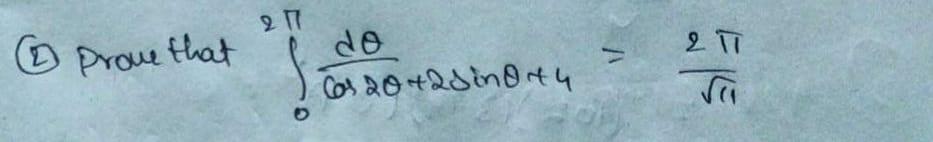 ② Prove that ∫₀^{2π} dθ / (cos 2θ + 2 sin θ + 4) = 2π / √11